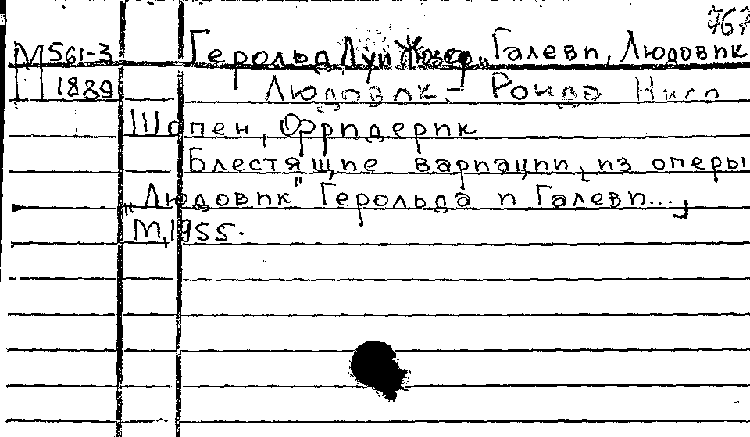 767
М 561-3 Герольд, Луи Жозеф, Галеви, Людовик
1889 Людовик. - Рондо
Шопен, Фридерик
Блестящие вариации из оперы
„Людовик" Герольда и Галеви...,
М, 1955.